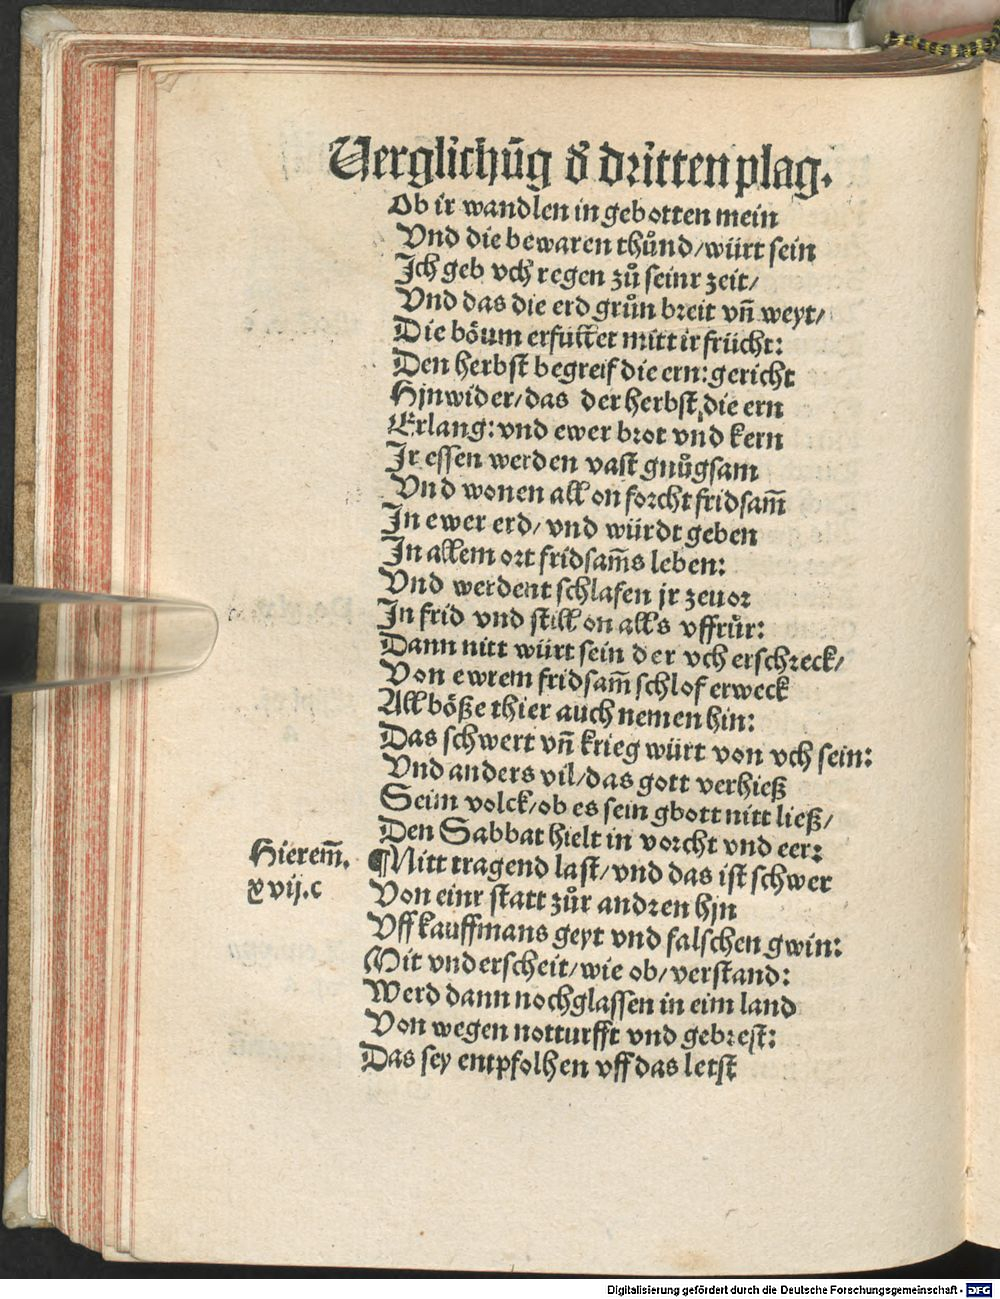 Verglichūg d̄ dritten plag.
Ob ir wandlen in gebotten mein
Vnd die bewaren thůnd/würt sein
Jch geb vch regen zů seinr zeit/
Vnd das die erd grůn breit vn̄ weyt/
Die böum erfüllet mitt ir frücht:
Den herbst begreif die ern: gericht
Hjnwider/das der herbst die ern
Erlang: vnd ewer brot vnd kern
Jr essen werden vast gnůgsam
Vnd wonen all on forcht fridsam̄
Jn ewer erd/ vnd würdt geben
Jn allem ort fridsam̄s leben:
Vnd werdent schlafen jr zeuor
Jn frid vnd still on alls vffrůr:
Dann nitt würt sein der vch erschreck/
Von ewrem fridsam̄ schlof erweck
All böße thier auch nemen hin:
Das schwert vn̄ krieg würt von vch sein:
Vnd anders vil/das gott verhieß
Seim volck/ob es sein gbott nitt ließ/
Den Sabbat hielt in vorcht vnd eer:
Hierem̄.
xvij.c
¶Nitt tragend last/vnd das ist schwer
Von einr statt zůr andren hjn
Vff kauffmans geyt vnd falschen gwin:
Mit vnderscheit/wie ob/verstand:
Werd dann nochglassen in eim land
Von wegen notturfft vnd gebrest:
Das sey entpfolhen vff das letst
Digitalisierung gefördert durch die Deutsche Forschungsgemeinschaft - DFG